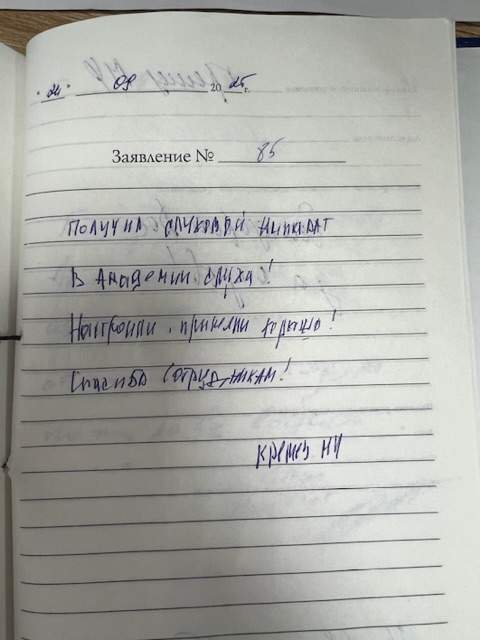 "24" 09 2025 г.
Заявление № 85
Получил слуховой аппарат
В Академии слуха!
Настроили, приняли хорошо!
Спасибо сотрудникам!